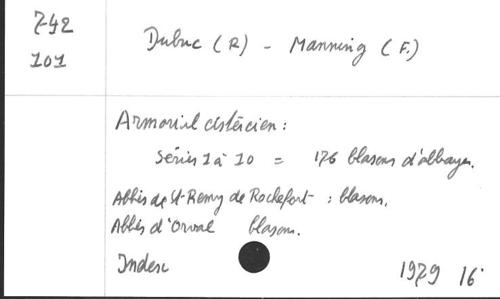 742
101
Dubuc (R) - Manning (F.)
Armorial cistercien :
Séries 1 à 10 = 176 blasons d'abbayes.
Abbés de St-Remy de Rochefort : blasons.
Abbés d'Orval blasons.
Index
1979 16°